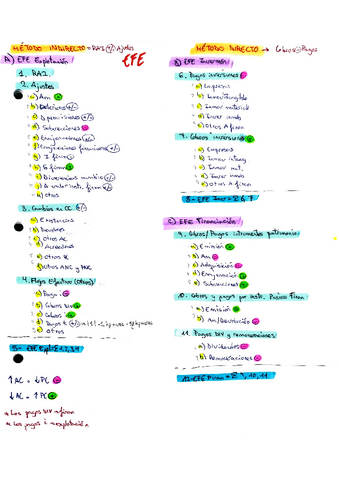 MÉTODO INDIRECTO = RAI (+/-) Ajustes
EFE
A) EFE Explotación
1. RAI.
2. Ajustes
a) Am +
b) Deterioros (+/-)
c) provisiones (+/-)
d) Subvenciones -
e) Enajenaciones (+/-)
f) Enajenaciones financieros (+/-)
g) I finan -
h) G finan +
i) Diferencias cambio (+/-)
j) Δ valor instr. finan (+/-)
k) Otros
3. Cambios en CC
a) Existencias
b) Deudores
c) Otros AC
d) Acreedores
e) Otros PC
f) Otros ANC y PNC
4. Flujos Efectivo (otros)
a) Pago i -
b) Cobros DIV +
c) Cobros i +
d) Pagos
e) Otros
5 - EFE Explo = Σ 1, 2, 3, 4
↑AC = ↓PC -
↓AC = ↑PC +
* Los pagos DIV → finan
* Los pagos i → explotación
MÉTODO DIRECTO → Cobros - Pagos
B) EFE Inversión
6. Pagos inversiones -
a) Empresas
b) Inmov Intangible
c) Inmov material
d) Inver inmob
e) Otros A finan
7. Cobros inversiones +
a) Empresas
b) Inmov intang
c) Inmov mat.
d) Inver inmob
e) Otros A finan
8 - EFE Inver = Σ 6, 7
C) EFE Financiación
9. Cobros/Pagos intrumentos patrimonio
a) Emisión +
b) Am -
c) Adquisición -
d) Enajenación +
e) Subvenciones +
10. Cobros y pagos por instr. Pasivo Finan
a) Emisión +
b) Am/Devolución -
11. Pagos DIV y remuneraciones
a) Dividendos -
b) Remuneraciones -
12 - EFE Finan = Σ 9, 10, 11